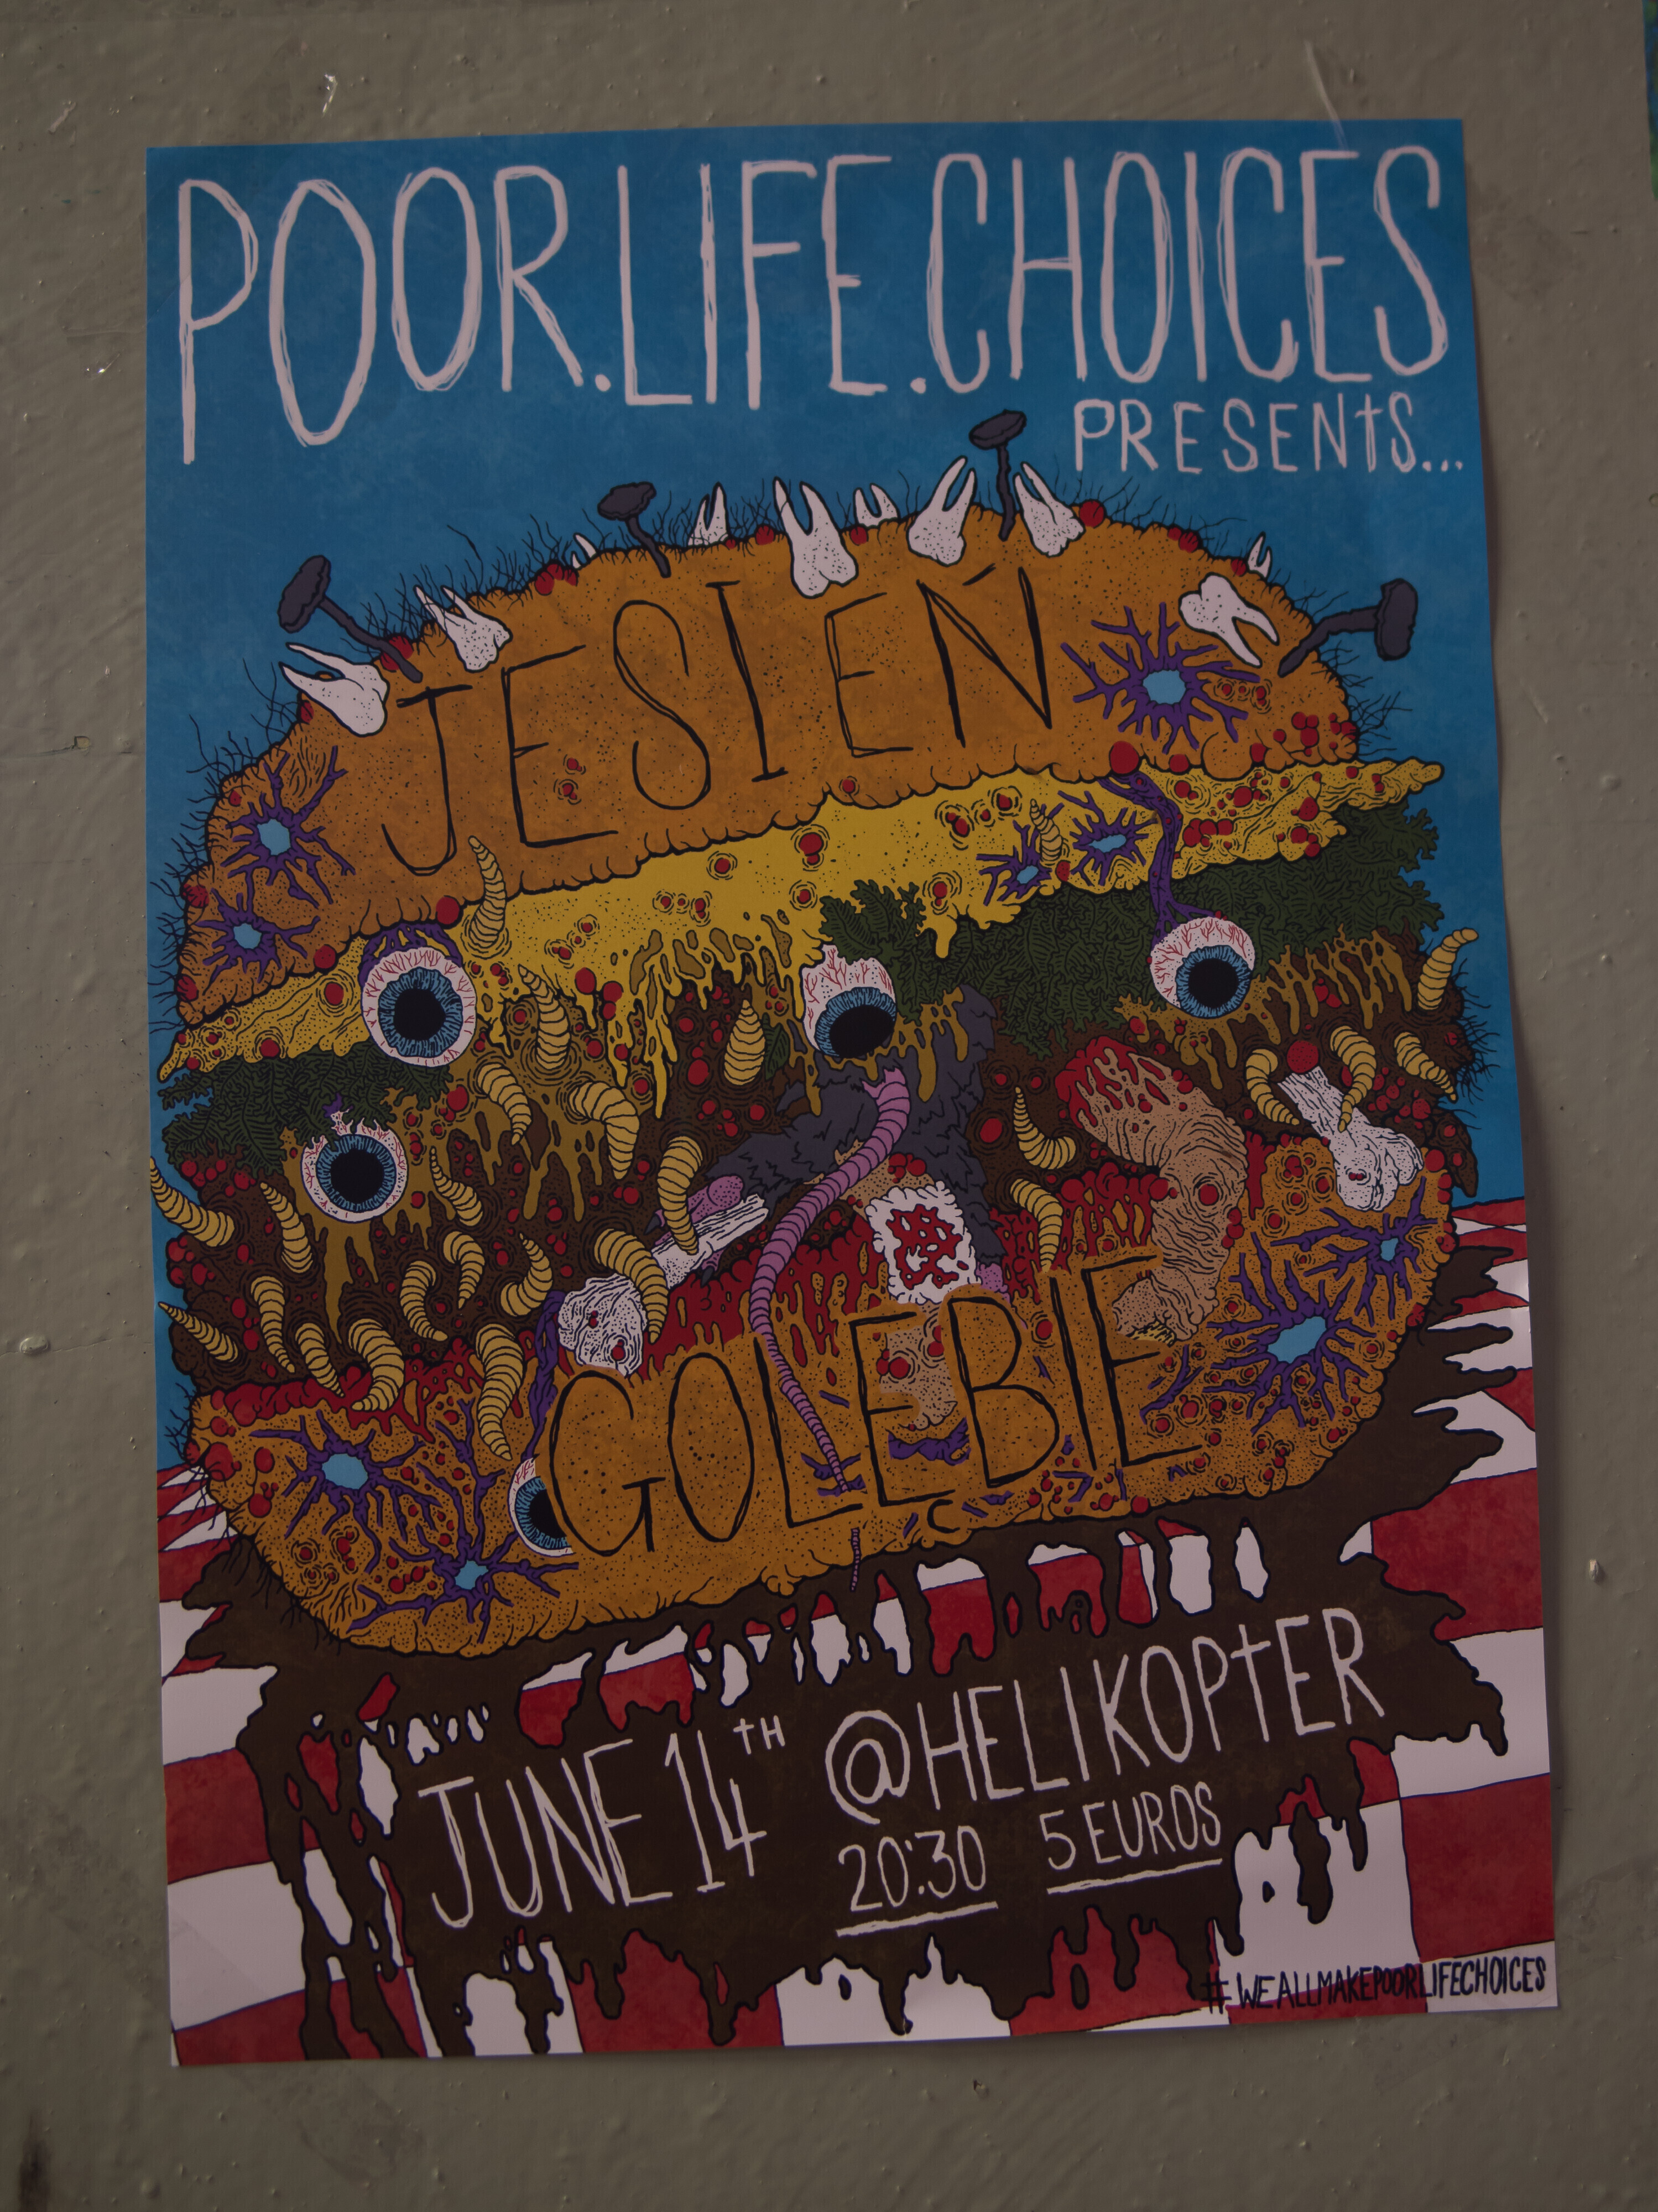 POOR.LIFE.CHOICES
PRESENTS...
JESIEŃ
GOLĘBIE
JUNE 14TH @HELIKOPTER
20:30 5 EUROS
#WEALLMAKEPOORLIFECHOICES